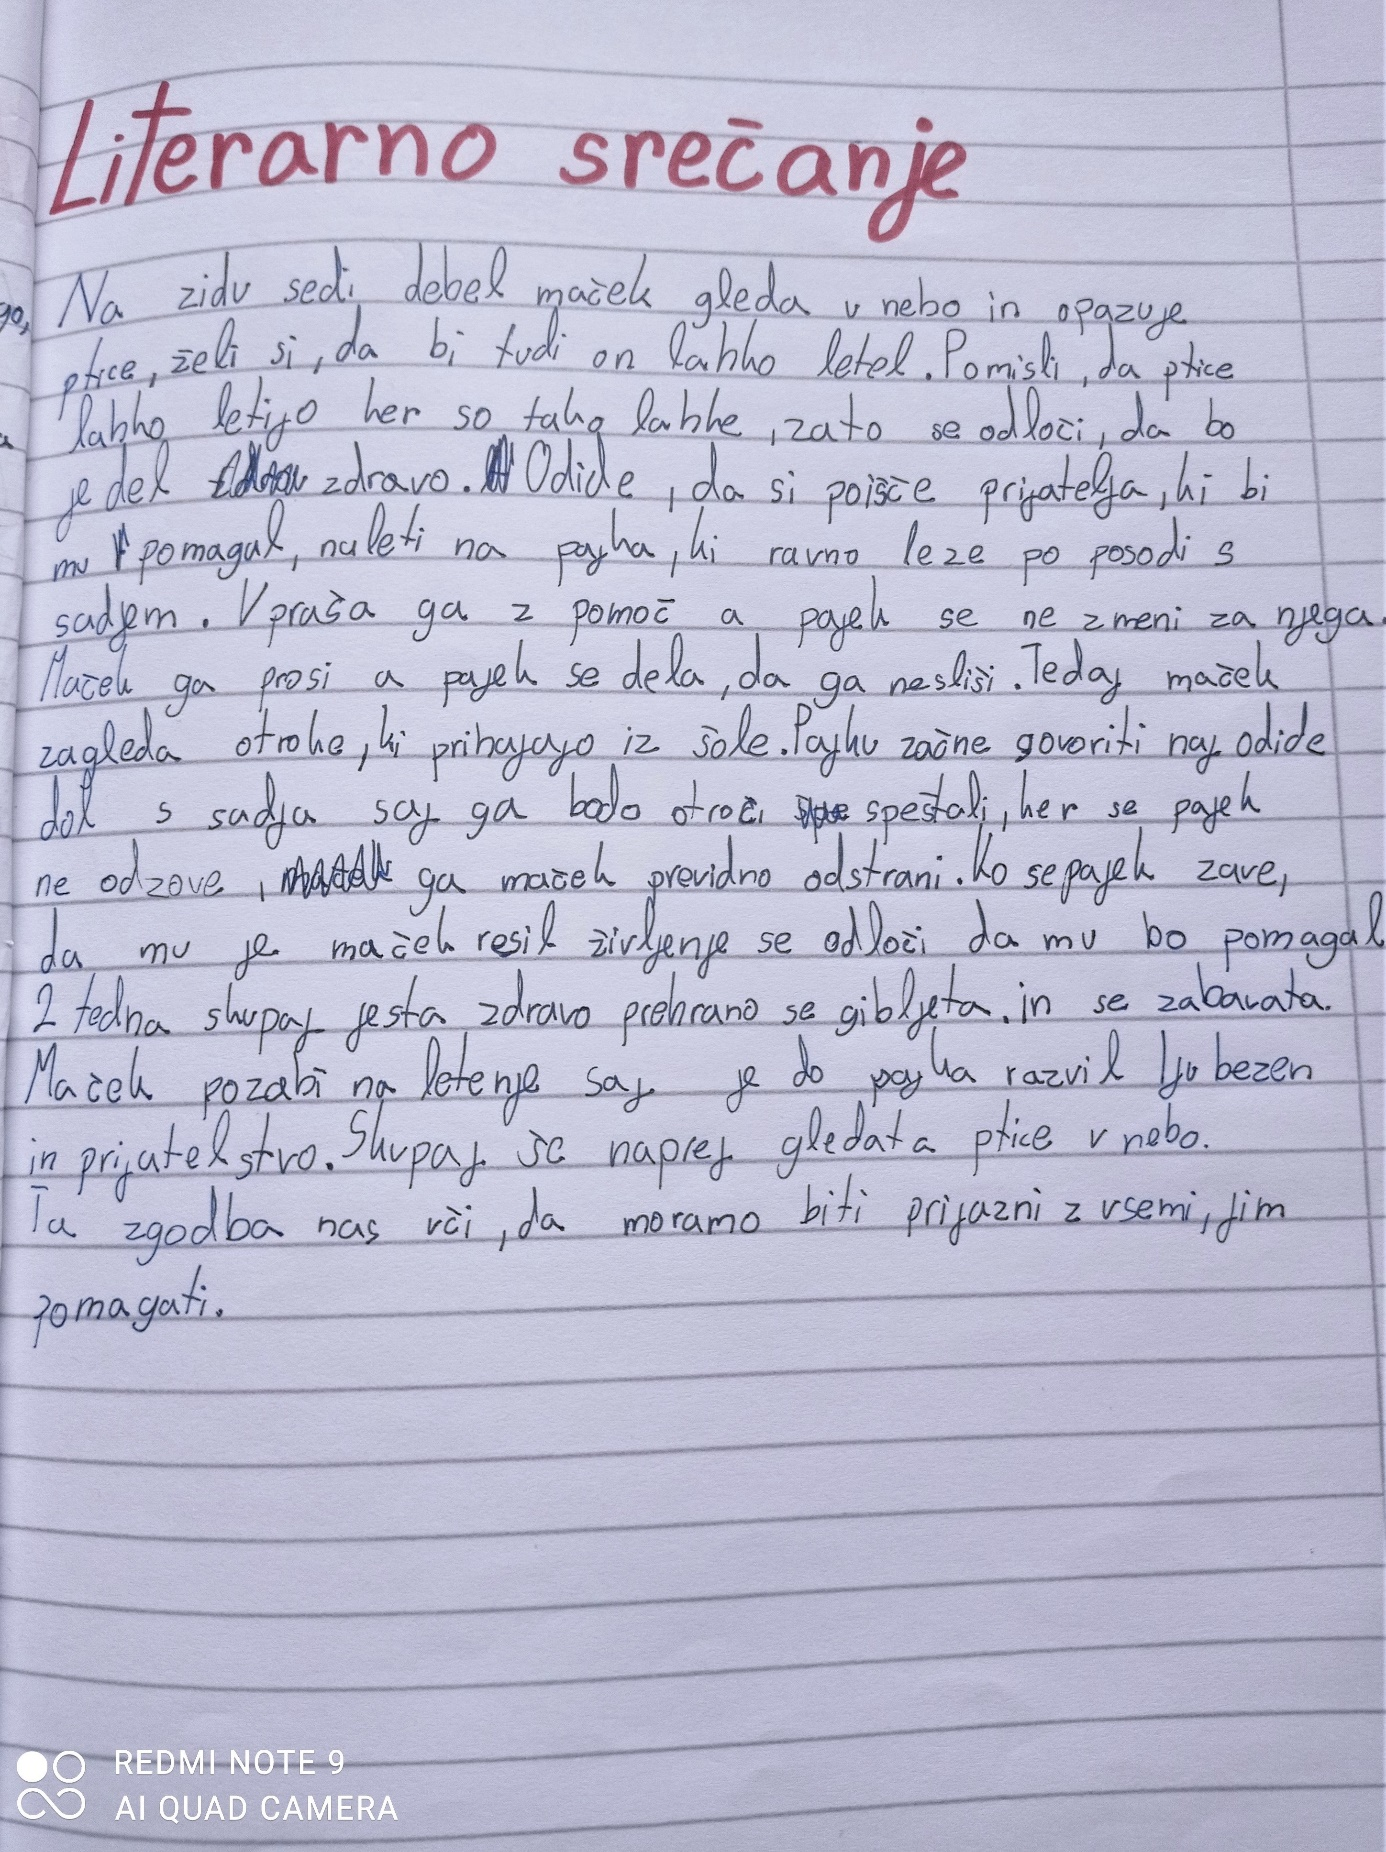 Literarno srečanje
Na zidu sedi debel maček gleda v nebo in opazuje
go,
ptice, želi si, da bi tudi on lahko letel. Pomisli, da ptice
lahko letijo ker so tako lahke, zato se odloči, da bo
jedel zdravo. Odide, da si poišče prijatelja, ki bi
mu pomagal, naleti na pajka, ki ravno leze po posodi s
sadjem. Vpraša ga z pomoč a pajek se ne zmeni za njega.
Maček ga prosi a pajek se dela, da ga nesliši. Tedaj maček
zagleda otroke, ki prihajajo iz šole. Pajku začne govoriti naj odide
dol s sadja saj ga bodo otroci speštali, ker se pajek
ne odzove, ga maček previdno odstrani. Ko se pajek zave,
da mu je maček resil življenje se odloči da mu bo pomagal
2 tedna skupaj jesta zdravo prehrano se gibljeta. in se zabavata.
Maček pozabi na letenje saj je do pajka razvil ljubezen
in prijatelstvo. Skupaj še naprej gledata ptice v nebo.
Ta zgodba nas uči, da moramo biti prijazni z vsemi, jim
pomagati.
REDMI NOTE 9
AI QUAD CAMERA